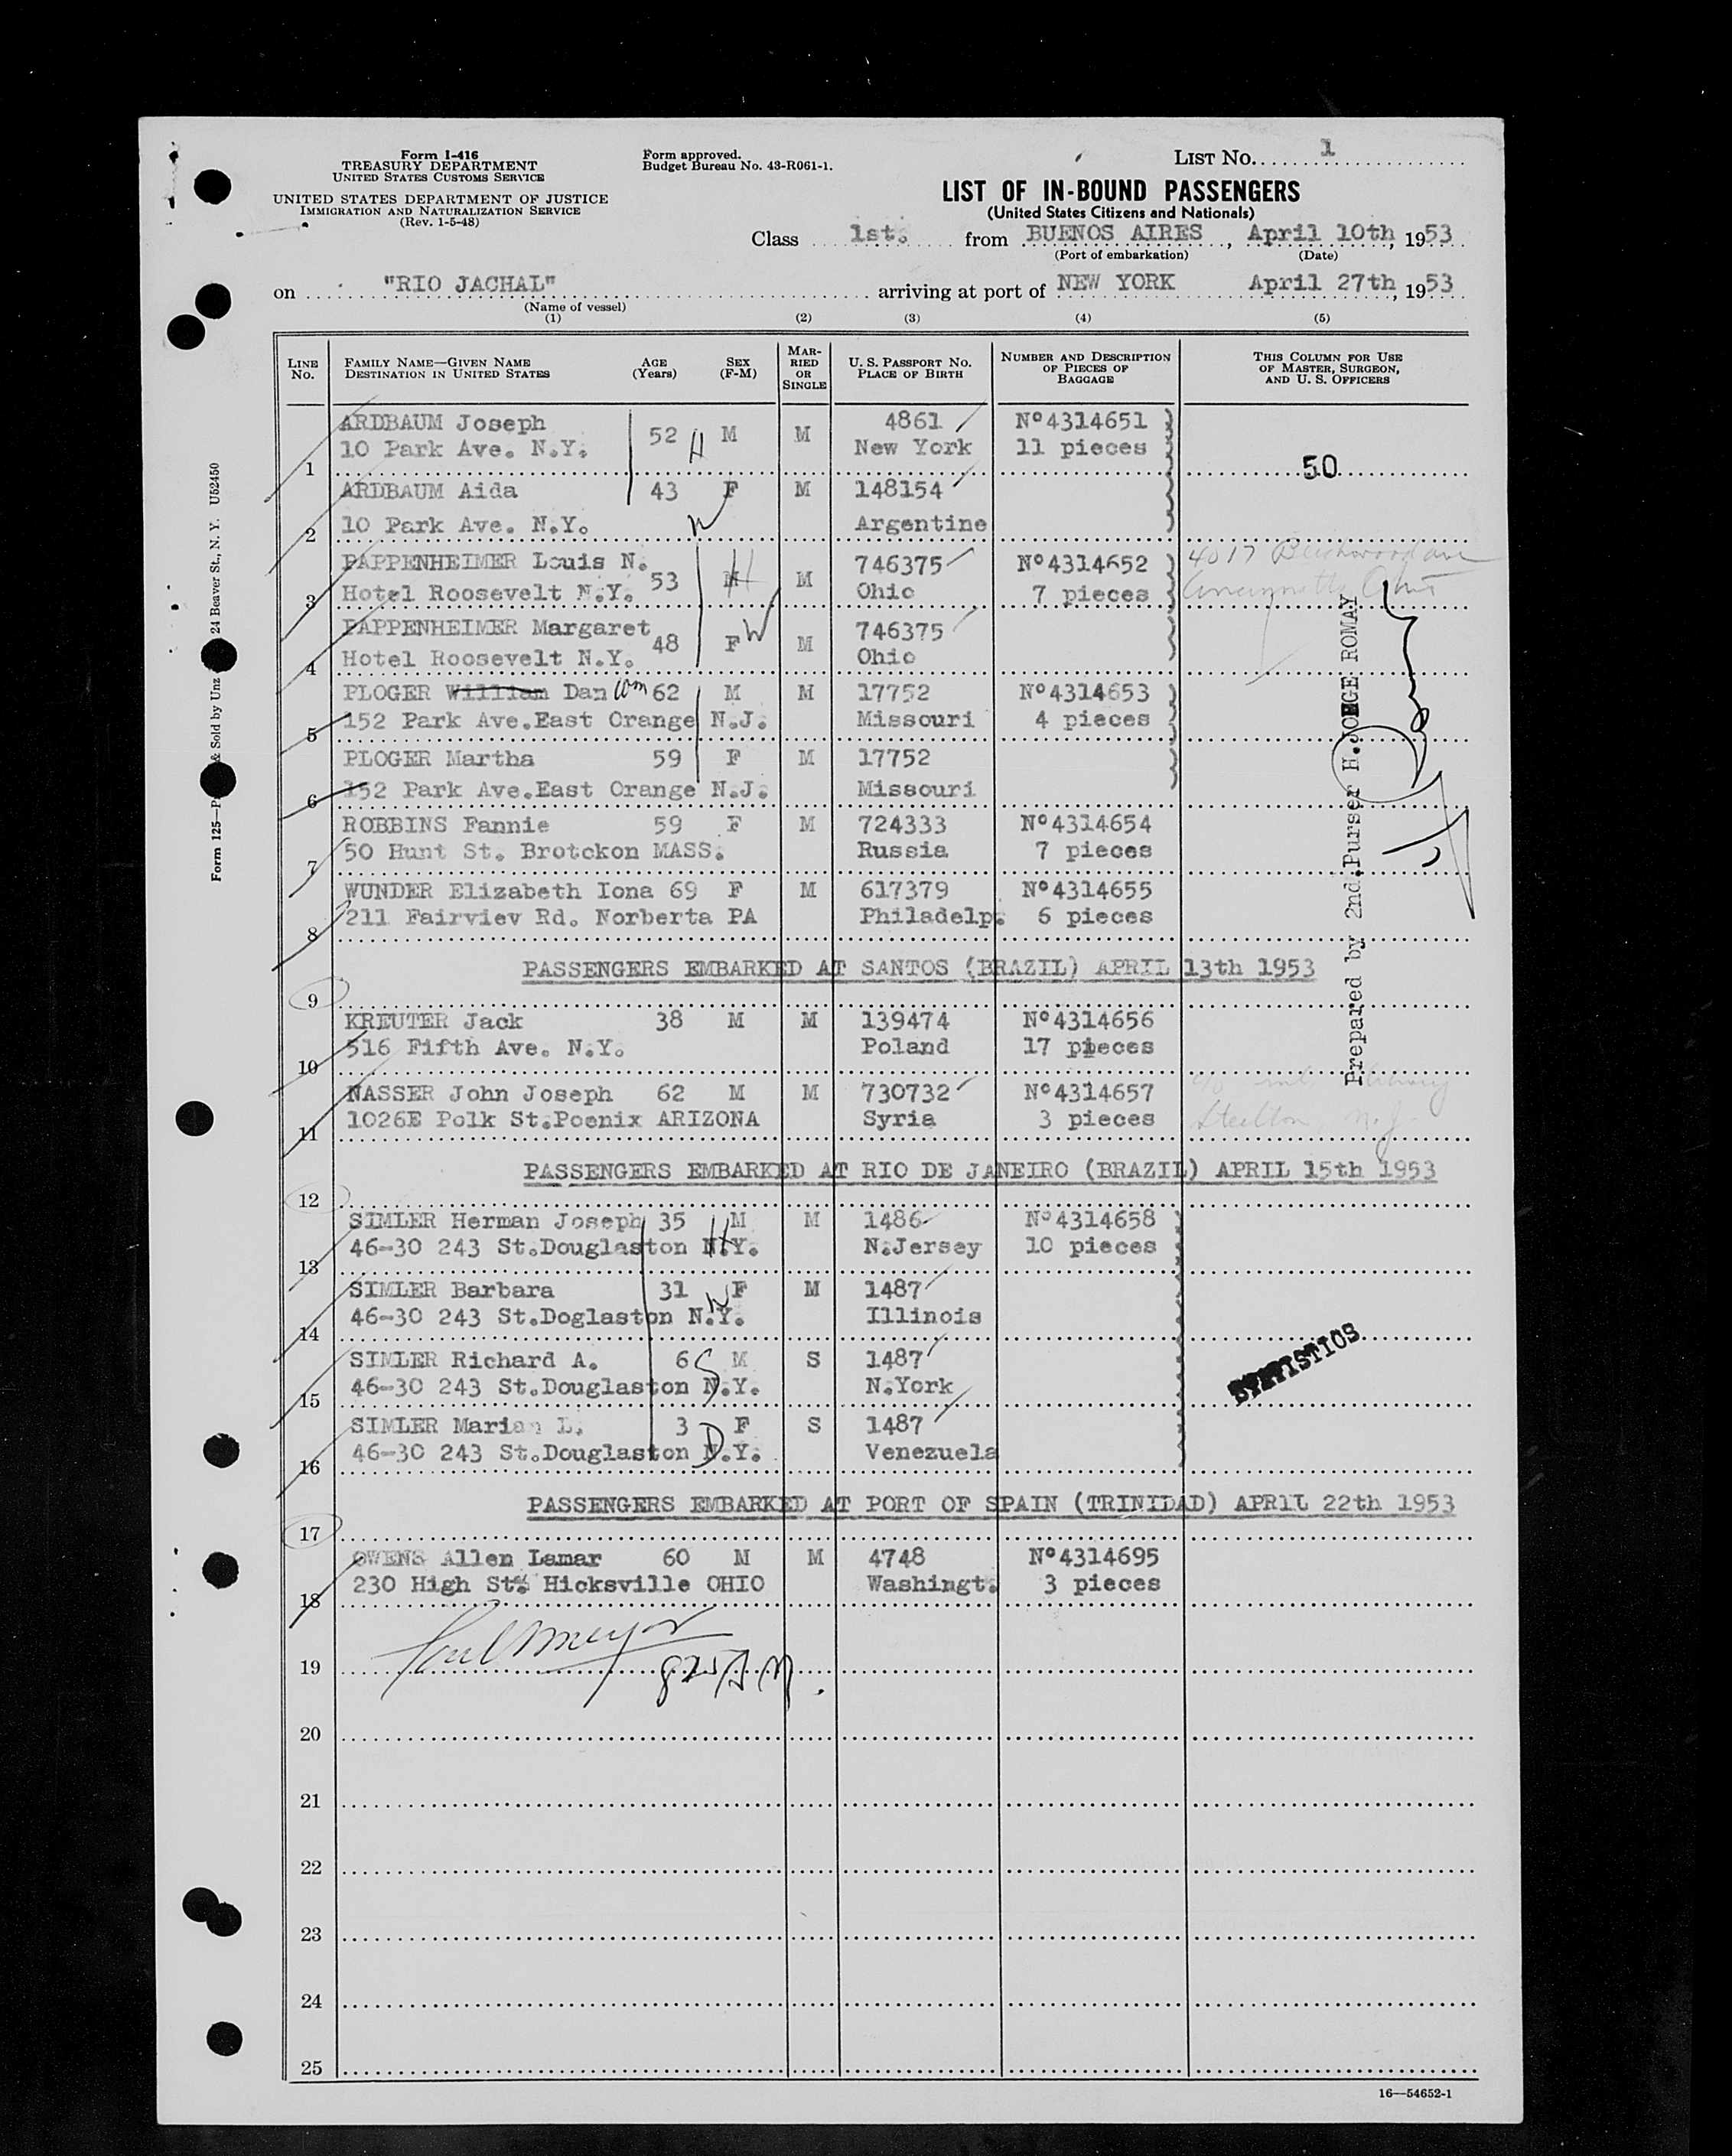 Form I-416
TREASURY DEPARTMENT
UNITED STATES CUSTOMS SERVICE
UNITED STATES DEPARTMENT OF JUSTICE
IMMIGRATION AND NATURALIZATION SERVICE
(Rev. 1-5-48)
Form approved.
Budget Bureau No. 43-R061-1.
LIST No. 1
LIST OF IN-BOUND PASSENGERS
(United States Citizens and Nationals)
Class 1st. from BUENOS AIRES, April 10th, 1953
(Port of embarkation) (Date)
on "RIO JACHAL" arriving at port of NEW YORK April 27th, 1953
(Name of vessel)
(1) (2) (3) (4) (5)
LINE No. FAMILY NAME—GIVEN NAME DESTINATION IN UNITED STATES AGE (Years) SEX (F-M) MARRIED OR SINGLE U. S. PASSPORT NO. PLACE OF BIRTH NUMBER AND DESCRIPTION OF PIECES OF BAGGAGE THIS COLUMN FOR USE OF MASTER, SURGEON, AND U. S. OFFICERS
ARDBAUM Joseph 52 H M M 4861 Nº4314651
1 10 Park Ave. N.Y. New York 11 pieces 50
ARDBAUM Aida 43 F M 148154
2 10 Park Ave. N.Y. W Argentine
PAPPENHEIMER Louis N. 53 M H M 746375 Nº4314652 4017 Beechwood ave
3 Hotel Roosevelt N.Y. Ohio 7 pieces Cincinnati Ohio
PAPPENHEIMER Margaret 48 F W M 746375
4 Hotel Roosevelt N.Y. Ohio
PLOGER William Dan Wm 62 M M 17752 Nº4314653
5 152 Park Ave.East Orange N.J. Missouri 4 pieces
PLOGER Martha 59 F M 17752
6 152 Park Ave.East Orange N.J. Missouri
ROBBINS Fannie 59 F M 724333 Nº4314654
7 50 Hunt St. Brotckon MASS. Russia 7 pieces
WUNDER Elizabeth Iona 69 F M 617379 Nº4314655
8 211 Fairviev Rd. Norberta PA Philadelp. 6 pieces
PASSENGERS EMBARKED AT SANTOS (BRAZIL) APRIL 13th 1953
9
KREUTER Jack 38 M M 139474 Nº4314656
10 516 Fifth Ave. N.Y. Poland 17 pieces
NASSER John Joseph 62 M M 730732 Nº4314657
11 1026E Polk St.Poenix ARIZONA Syria 3 pieces N.J.
PASSENGERS EMBARKED AT RIO DE JANEIRO (BRAZIL) APRIL 15th 1953
12
SIMLER Herman Joseph 35 H M M 1486 Nº4314658
13 46-30 243 St.Douglaston N.Y. N.Jersey 10 pieces
SIMLER Barbara 31 W F M 1487
14 46-30 243 St.Doglaston N.Y. Illinois
SIMLER Richard A. 6 S M S 1487
15 46-30 243 St.Douglaston N.Y. N.York
SIMLER Marian L. 3 D F S 1487
16 46-30 243 St.Douglaston N.Y. Venezuela
PASSENGERS EMBARKED AT PORT OF SPAIN (TRINIDAD) APRIL 22th 1953
17
OWENS Allen Lamar 60 M M 4748 Nº4314695
18 230 High St. Hicksville OHIO Washingt. 3 pieces
19
20
21
22
23
24
25
16—54652-1
Prepared by 2nd.Purser H.JORGE ROMAY
STATISTICS
Form 125—P & Sold by Unz 24 Beaver St., N. Y. U52450